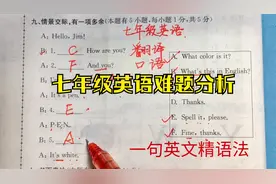 九、情景交际,有一项多余(本题有5小题,每小题1分,共5分)
A: Hello, Jim!
七年级英语
B: 1. C How are you?
翻译
A. What color is it?
A: 2. F And you?
口语
What's this in English?
七年级英语难题分析
A: It's a pen.
4. E
E. Spell it, please.
A: P-E-N.
F. Fine, thanks.
B: 5. A
一句英文精语法
A: It's white.